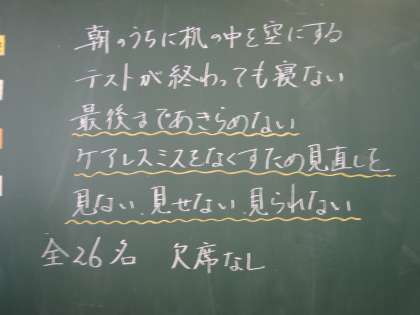 朝のうちに机の中を空にする
テストが終わっても寝ない
最後まであきらめない
ケアレスミスをなくすため見直しを
見ない、見せない、見られない
全26名 欠席なし